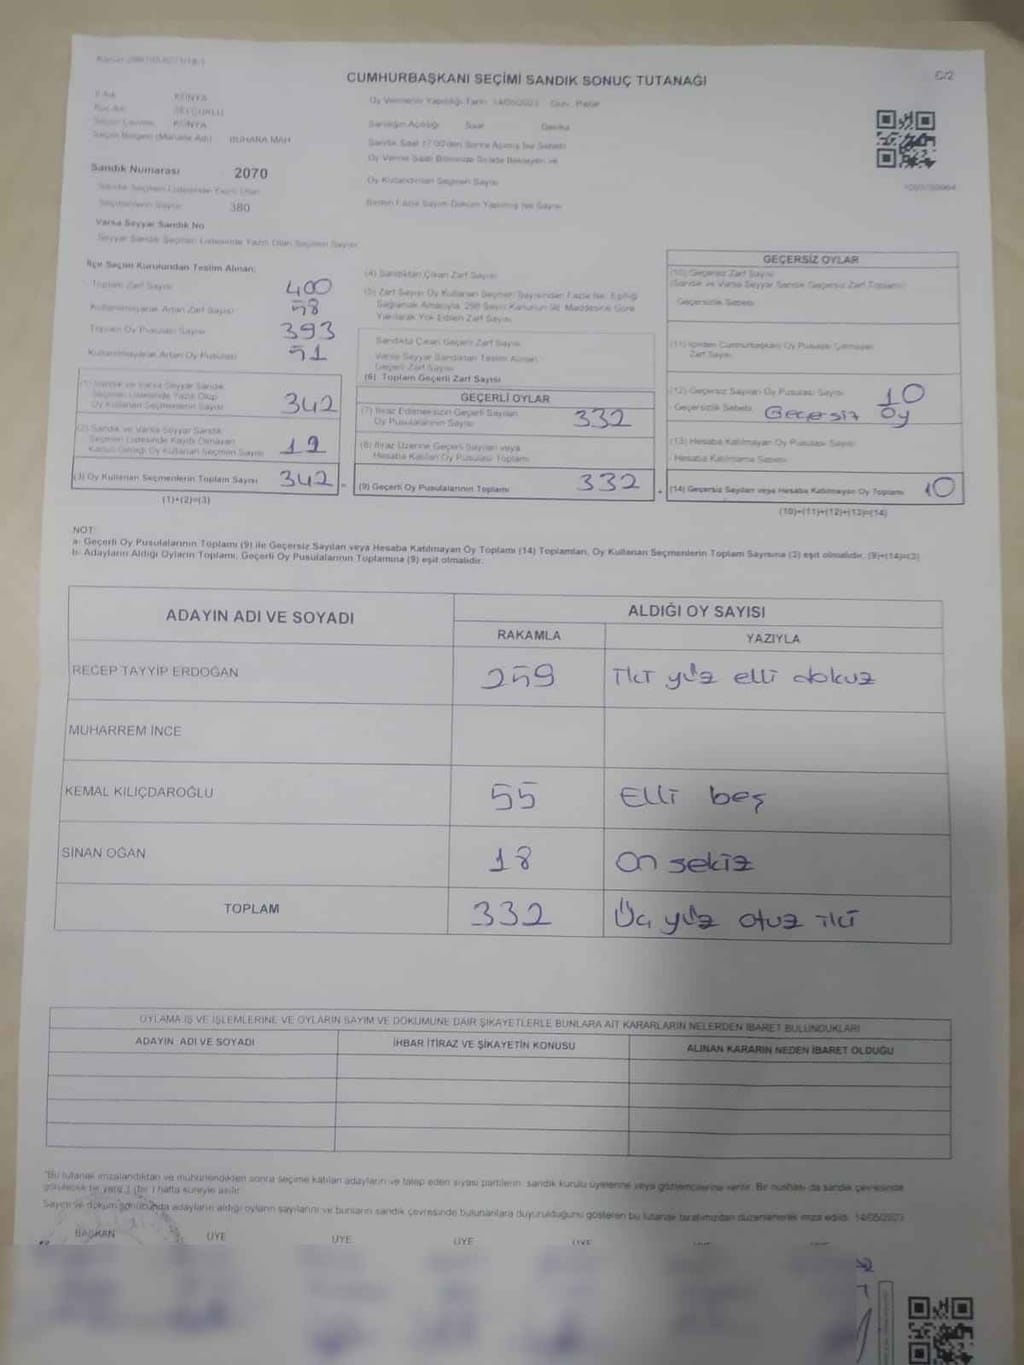 CUMHURBAŞKANI SEÇİMİ SANDIK SONUÇ TUTANAĞI
C/2
İl Adı KONYA
İlçe Adı SELÇUKLU
Seçim Çevresi KONYA
Seçim Bölgesi (Mahalle Adı) BUHARA MAH
Oy Vermenin Yapıldığı Tarih 14/05/2023 Gün Pazar
Sandığın Açıldığı Saat Dakika
Sandık Numarası 2070
Sandık Seçmen Listesinde Yazılı Olan
Seçmenlerin Sayısı 380
Oy Kullandırılan Seçmen Sayısı
Birden Fazla Sayım Döküm Yapılmış İse Sayısı
Varsa Seyyar Sandık No
Seyyar Sandık Seçmen Listesinde Yazılı Olan Seçmen Sayısı
İlçe Seçim Kurulundan Teslim Alınan:
Toplam Zarf Sayısı 400
Kullanılmayarak Artan Zarf Sayısı 58
Toplam Oy Pusulası Sayısı 393
Kullanılmayarak Artan Oy Pusulası 51
(1) Sandık ve Varsa Seyyar Sandık
Seçmen Listesinde Yazılı Olup
Oy Kullanan Seçmenlerin Sayısı 342
(2) Sandık ve Varsa Seyyar Sandık
Seçmen Listesinde Kayıtlı Olmayan
Kanun Gereği Oy Kullanan Seçmen Sayısı 12
(3) Oy Kullanan Seçmenlerin Toplam Sayısı 342
(1)+(2)=(3)
(4) Sandıktan Çıkan Zarf Sayısı
(5) Zarf Sayısı Oy Kullanan Seçmen Sayısından Fazla İse, Eşitliği
Sağlamak Amacıyla, 298 Sayılı Kanunun 98. Maddesine Göre
Yakılarak Yok Edilen Zarf Sayısı
Sandıkta Çıkan Geçerli Zarf Sayısı
Varsa Seyyar Sandıktan Teslim Alınan
Geçerli Zarf Sayısı
(6) Toplam Geçerli Zarf Sayısı
GEÇERLİ OYLAR
(7) İtiraz Edilmeksizin Geçerli Sayılan
Oy Pusulalarının Sayısı 332
(8) İtiraz Üzerine Geçerli Sayılan veya
Hesaba Katılan Oy Pusulası Toplamı
(9) Geçerli Oy Pusulalarının Toplamı 332
GEÇERSİZ OYLAR
(10) Geçersiz Zarf Sayısı
(Sandık ve Varsa Seyyar Sandık Geçersiz Zarf Toplamı)
Geçersizlik Sebebi
(11) İçinden Cumhurbaşkanı Oy Pusulası Çıkmayan
Zarf Sayısı
(12) Geçersiz Sayılan Oy Pusulası Sayısı 10
Geçersizlik Sebebi Geçersiz oy
(13) Hesaba Katılmayan Oy Pusulası Sayısı
Hesaba Katılmama Sebebi
(14) Geçersiz Sayılan veya Hesaba Katılmayan Oy Toplamı 10
(10)+(11)+(12)+(13)=(14)
NOT:
a- Geçerli Oy Pusulalarının Toplamı (9) ile Geçersiz Sayılan veya Hesaba Katılmayan Oy Toplamı (14) Toplamları, Oy Kullanan Seçmenlerin Toplam Sayısına (3) eşit olmalıdır. (9)+(14)=(3)
b- Adayların Aldığı Oyların Toplamı, Geçerli Oy Pusulalarının Toplamına (9) eşit olmalıdır.
ADAYIN ADI VE SOYADI ALDIĞI OY SAYISI
RAKAMLA YAZIYLA
RECEP TAYYİP ERDOĞAN 259 iki yüz elli dokuz
MUHARREM İNCE
KEMAL KILIÇDAROĞLU 55 Elli beş
SİNAN OĞAN 18 On sekiz
TOPLAM 332 Üç yüz otuz iki
OYLAMA İŞ VE İŞLEMLERİNE VE OYLARIN SAYIM VE DÖKÜMÜNE DAİR ŞİKAYETLERLE BUNLARA AİT KARARLARIN NELERDEN İBARET BULUNDUKLARI
ADAYIN ADI VE SOYADI İHBAR İTİRAZ VE ŞİKAYETİN KONUSU ALINAN KARARIN NEDEN İBARET OLDUĞU
*Bu tutanak imzalandıktan ve mühürlendikten sonra seçime katılan adayların ve talep eden siyasi partilerin, sandık kurulu üyelerine veya gözlemcilerine verilir. Bir nüshası da sandık çevresinde
görülecek bir yere 1 (bir) hafta süreyle asılır.
Sayım ve döküm sonucunda adayların aldığı oyların sayılarını ve bunların sandık çevresinde bulunanlara duyurulduğunu gösteren bu tutanak tarafımızdan düzenlenerek imza edildi. 14/05/2023
BAŞKAN ÜYE ÜYE ÜYE ÜYE